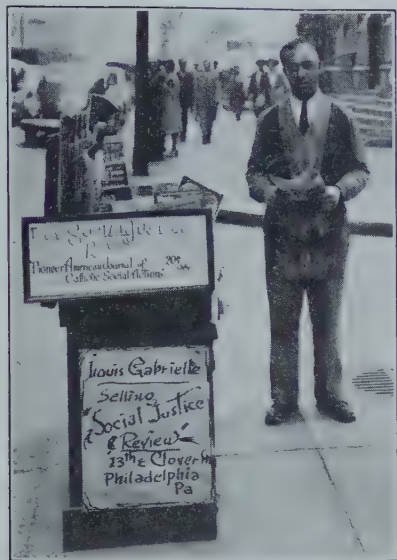 Pioneer American Journal of
Catholic Social Action
20¢
Louis Gabrielle
Selling
"Social Justice
Review"
13th & Clover
Philadelphia
Pa